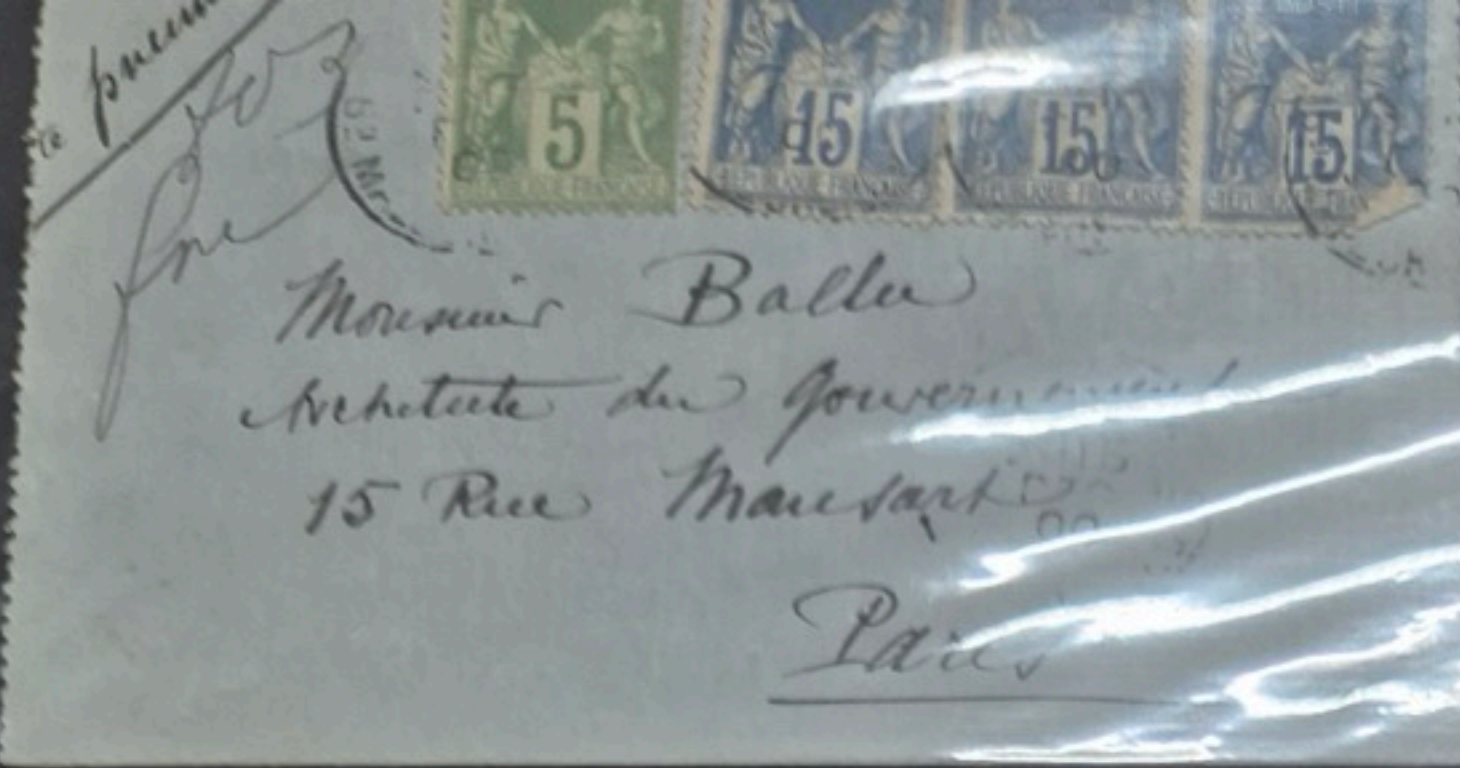 5 15 15 15
REPUBLIQUE FRANCAISE REPUBLIQUE FRANCAISE REPUBLIQUE FRANCAISE REPUBLIQUE FRAN
pneum
Monsieur Ballu
Architecte du Gouvernement
15 Rue Mansart
Paris